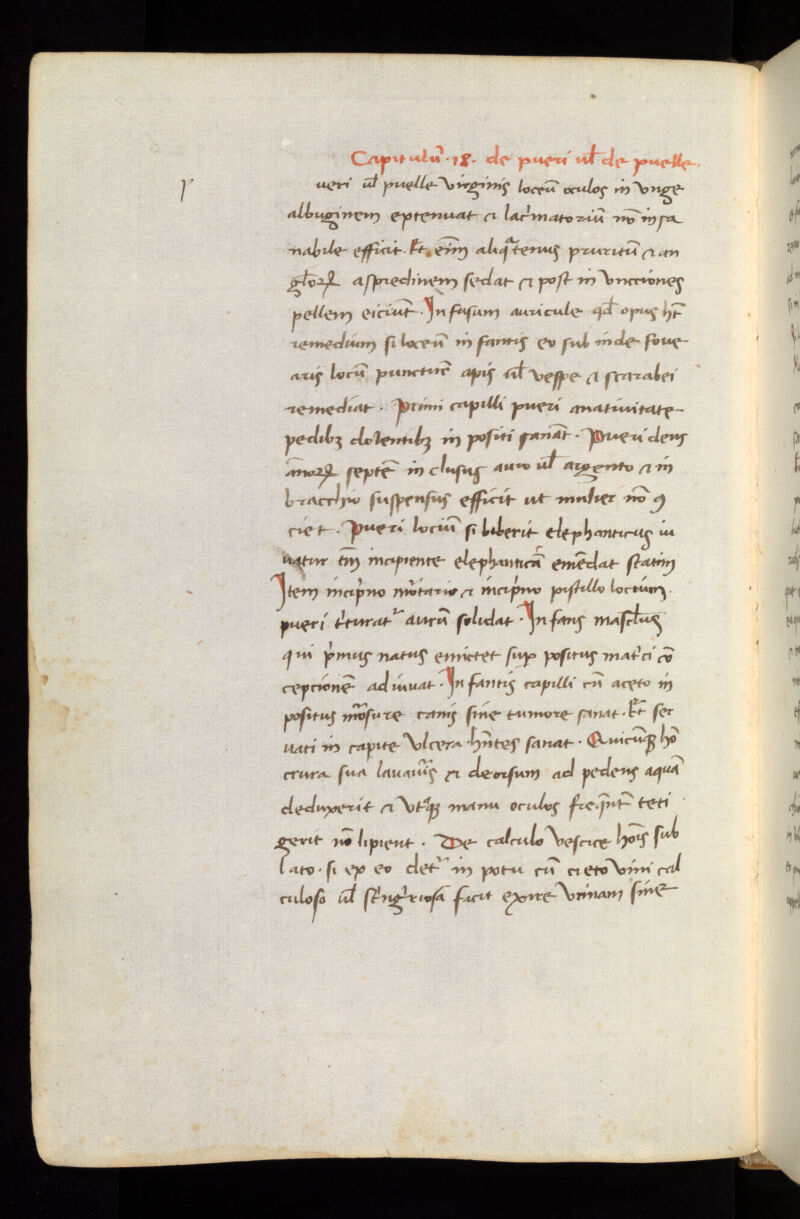 Capitulū · 18 · de pueri ul̄ de puelle ·
p
ueri ul̄ puelle virginis loceū oculos in vnge
albuginem extenuat et lac̄matoriū nō in sa
nabile efficit · Et enī aliqͣtenus pruritū et an
gl̄oꝝ aspredinem sedat et post in vncciones
pellem eiciūt · In fusum auricule qd̄ opus hꝫ
remedium si loceū in fantis eo sub inde foue
aris locū puncturē apis ul̄ vespe et scarabei
remediat · Primi capilli pueri anatiuitate
pedibꝫ dolentibꝫ in positi sanāt · Pueri dens
ānoꝝ septē in clusus auro ul̄ argento et in
bracchio suspensus efficit ut mulier nō ꝯ
ciet · Pueri lociū si biberit elephanticus iu
uatur tm̄ incipiente elephanticā emēdat statim
Item incip̄no mōtario et incip̄no pistillo locium
pueri t̄rturatͬ aurū solidat · In fans mascl̄us
qui p̄mus natus emictet sup̄ positus mat̄ci cō
cepcionē adiuuat · In fantis capilli cū aceto in
positus mōsure canis sine tumore sanat · Et ser
uati in capite vlcera hn̄tes sanat · Quicūqꝫ hō
crura sua lauau̓is et deorsum ad pedens aquā
deduxerit et vtͣqꝫ manu oculos freq̄nt̄ teti
gerit nō lipient · De calculo vescice hoīs sub
lato · si ex eo detͬ in potu cū cieto vini cal
culoso ul̄ st̄ng̓riosā facit exire vrinam sine